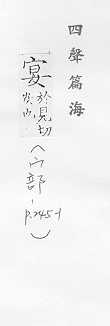 四聲篇海
「宴於見切
(宀部,
p.245-1)